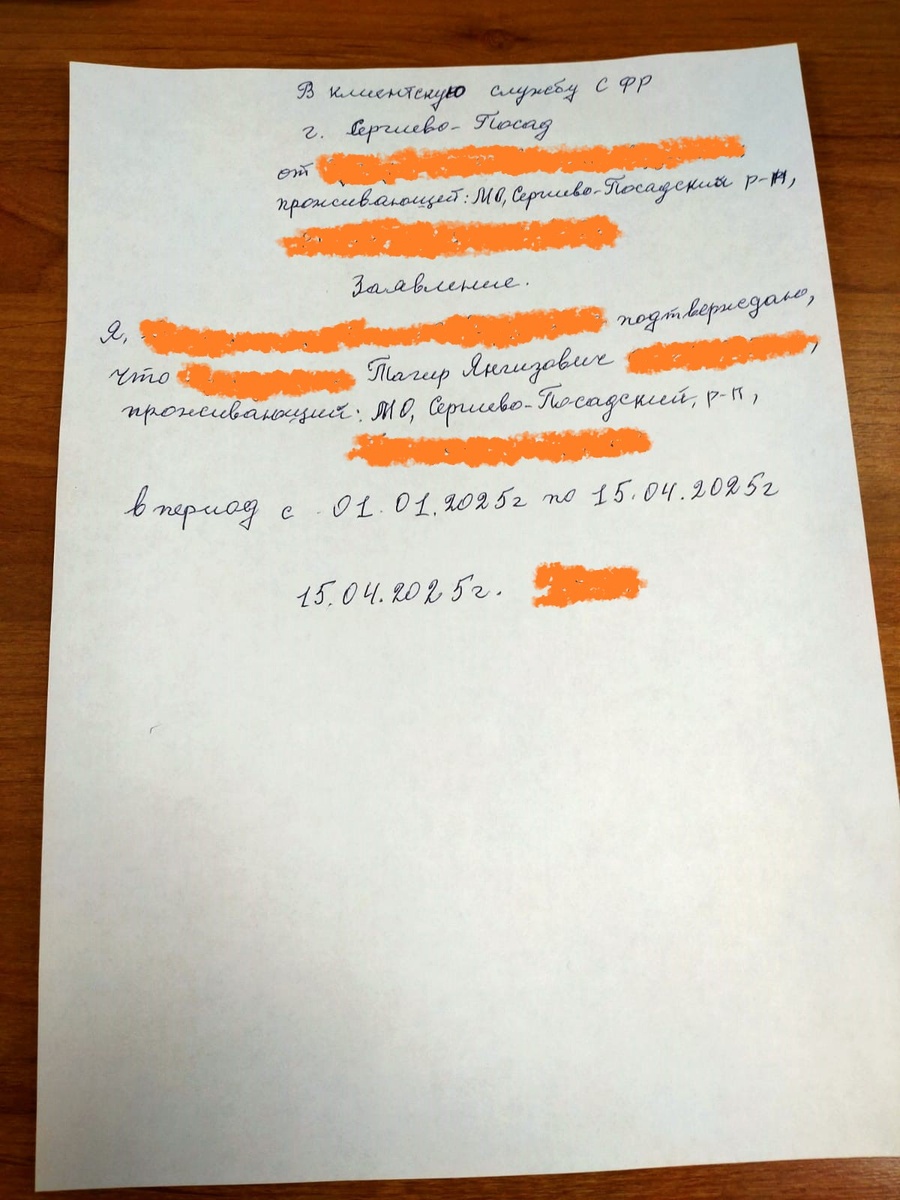 В клиентскую службу СФР
г. Сергиево-Посад
от
проживающей: МО, Сергиево-Посадский р-н,
Заявление.
Я, подтверждаю,
что Тагир Янгизович ,
проживающий: МО, Сергиево-Посадский, р-н,
в период с 01.01.2025г по 15.04.2025г
15.04.2025г.